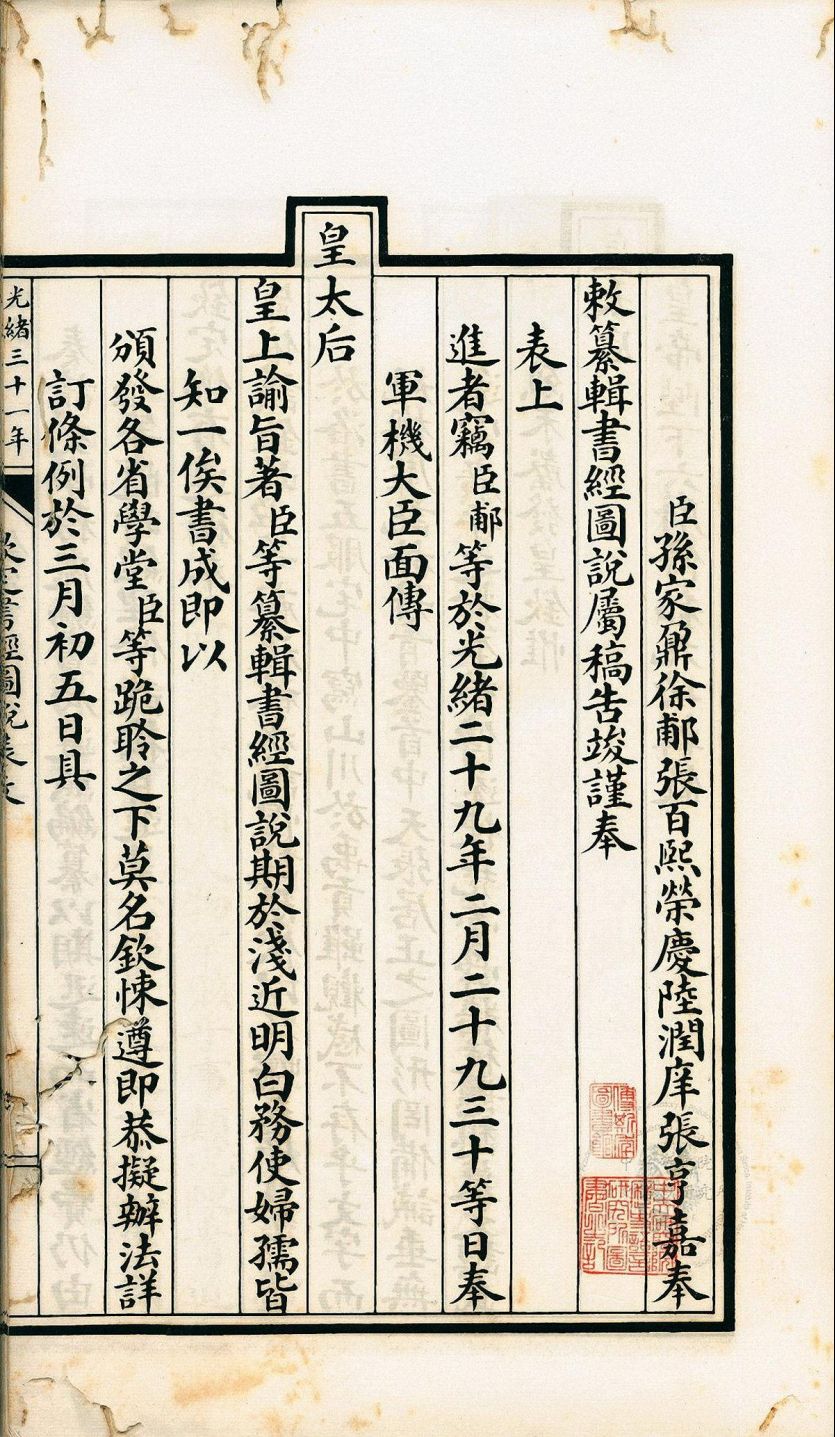 臣孫家鼐徐郙張百熙榮慶陸潤庠張亨嘉奉
敕纂輯書經圖說屬稿告竣謹奉
表上
進者竊臣郙等於光緒二十九年二月二十九三十等日奉
軍機大臣面傳
皇太后
皇上諭旨著臣等纂輯書經圖說期於淺近明白務使婦孺皆
知一俟書成即以
頒發各省學堂臣等跪聆之下莫名欽悚遵即恭擬辦法詳
訂條例於三月初五日具
光緒三十一年
欽定書經圖說表文
傅斯年圖書館